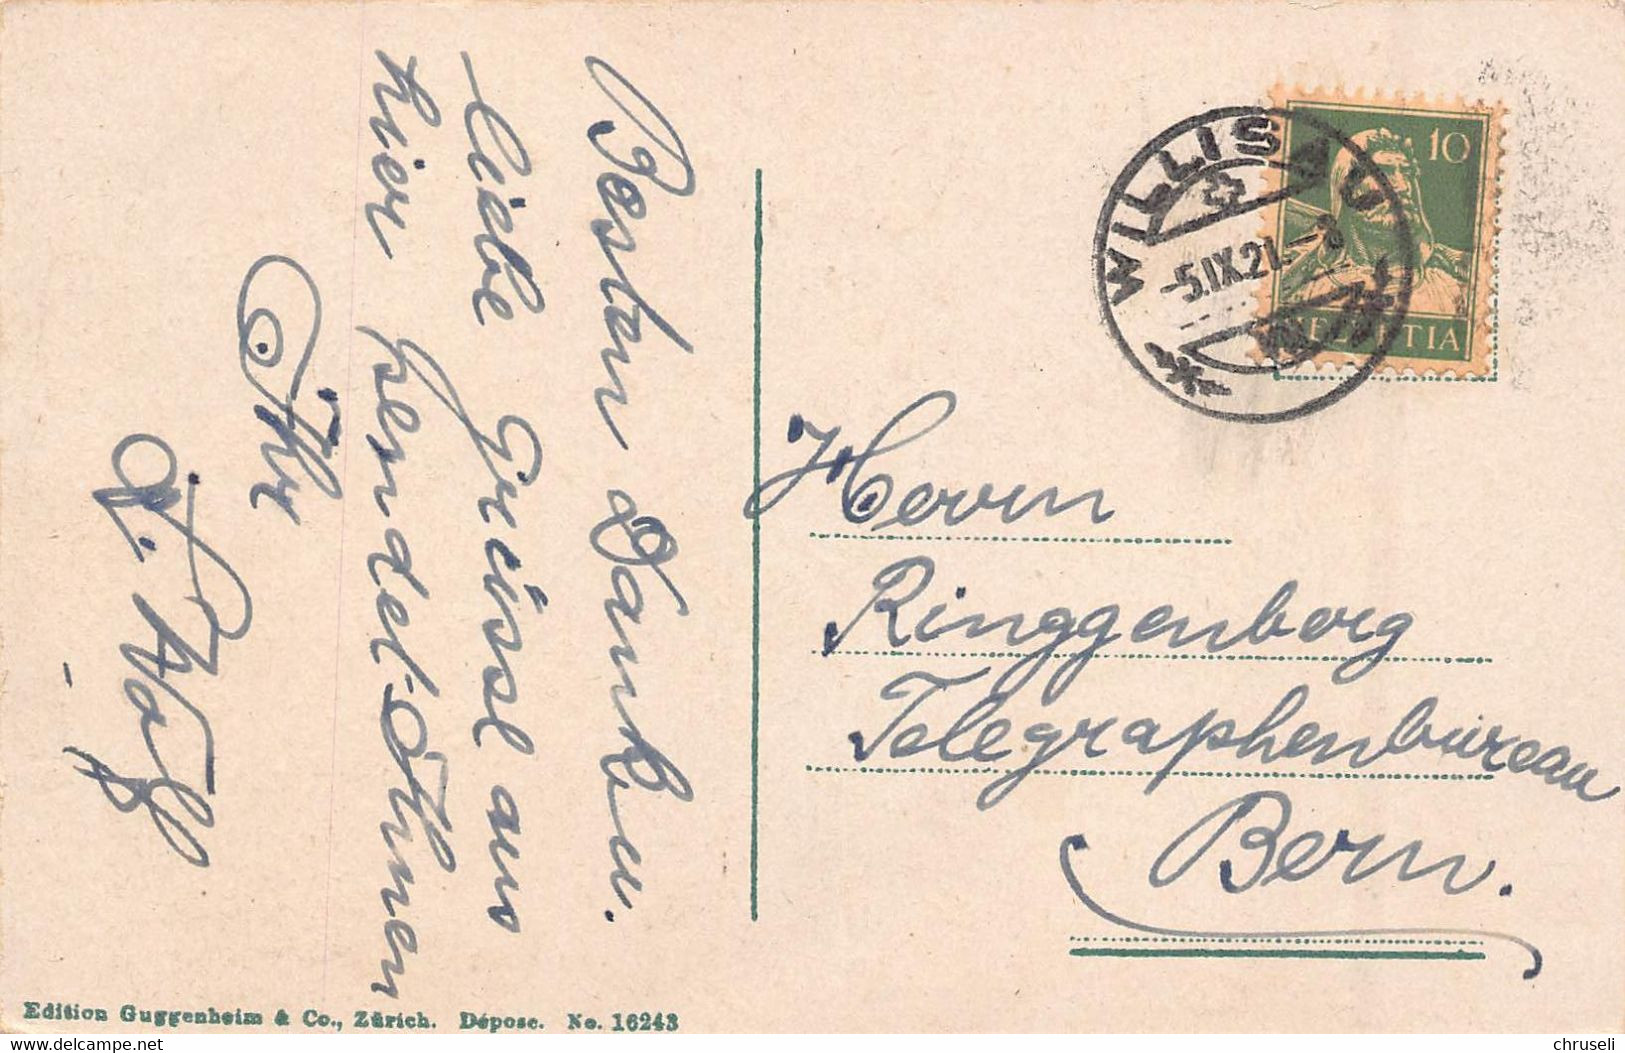 Besten Dank u.
liebe Grüsse aus
hier sendet Ihnen
Ihr
WILLISAU
-5.IX.21.-
10
HELVETIA
Herrn
Ringgenberg
Telegraphenbüreau
Bern.
Edition Guggenheim & Co., Zürich. Déposé. No. 16243
delcampe.net
chruseli